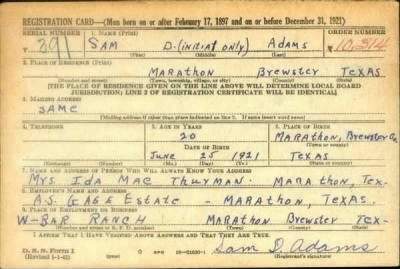 REGISTRATION CARD—(Men born on or after February 17, 1897 and on or before December 31, 1921)
SERIAL NUMBER 1. NAME (Print) ORDER NUMBER
391 SAM D.(initial only) Adams 10,314
(First) (Middle) (Last)
2. PLACE OF RESIDENCE (Print)
MARATHON Brewster TEXAS
(Number and street) (Town, township, village, or city) (County) (State)
[THE PLACE OF RESIDENCE GIVEN ON THE LINE ABOVE WILL DETERMINE LOCAL BOARD
JURISDICTION; LINE 2 OF REGISTRATION CERTIFICATE WILL BE IDENTICAL]
3. MAILING ADDRESS
SAME
(Mailing address if other than place indicated on line 2. If same insert word same)
4. TELEPHONE 5. AGE IN YEARS 6. PLACE OF BIRTH
20 MARATHON, Brewster Co
DATE OF BIRTH (Town or county)
June 25 1921 TEXAS
(Exchange) (Number) (Mo.) (Day) (Yr.) (State or country)
7. NAME AND ADDRESS OF PERSON WHO WILL ALWAYS KNOW YOUR ADDRESS
Mrs Ida Mae Thurman. MARAthon, Tex.
8. EMPLOYER'S NAME AND ADDRESS
A.S. GAGE Estate - MARATHON, TEXAS.
9. PLACE OF EMPLOYMENT OR BUSINESS
W-BAR RANCH MARATHON Brewster Tex-
(Number and street or R. F. D. number) (Town) (County) (State)
I AFFIRM THAT I HAVE VERIFIED ABOVE ANSWERS AND THAT THEY ARE TRUE.
D. S. S. Form 1
(Revised 1-1-42) (over) Sam D. Adams
(Registrant's signature)